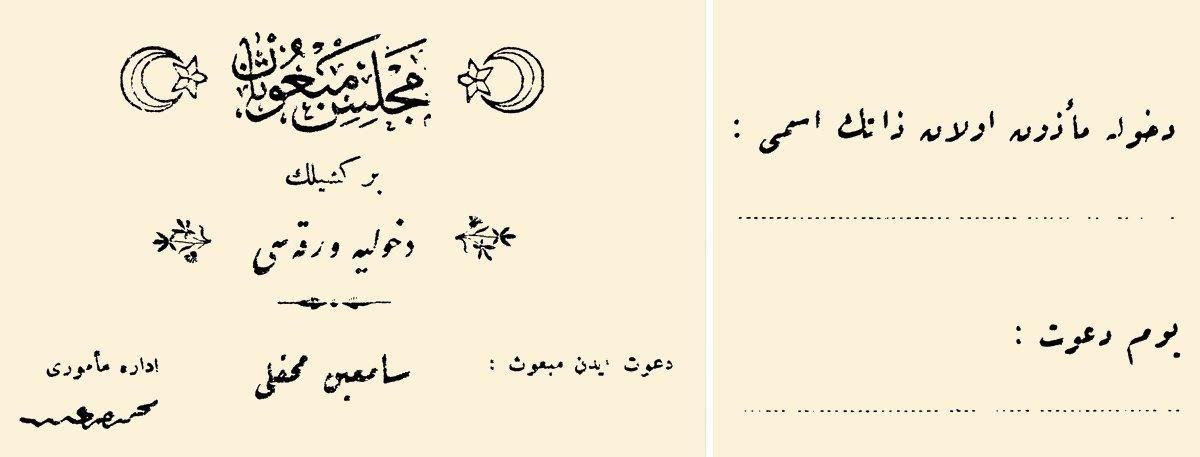 مجلس مبعوثان
بر كشيلك
دخوليه ورقه‌سى
دعوت ايدن مبعوث :
سامعين محفلى
اداره مأمورى
دخوله مأذون اولان ذاتك اسمى :
يوم دعوت :